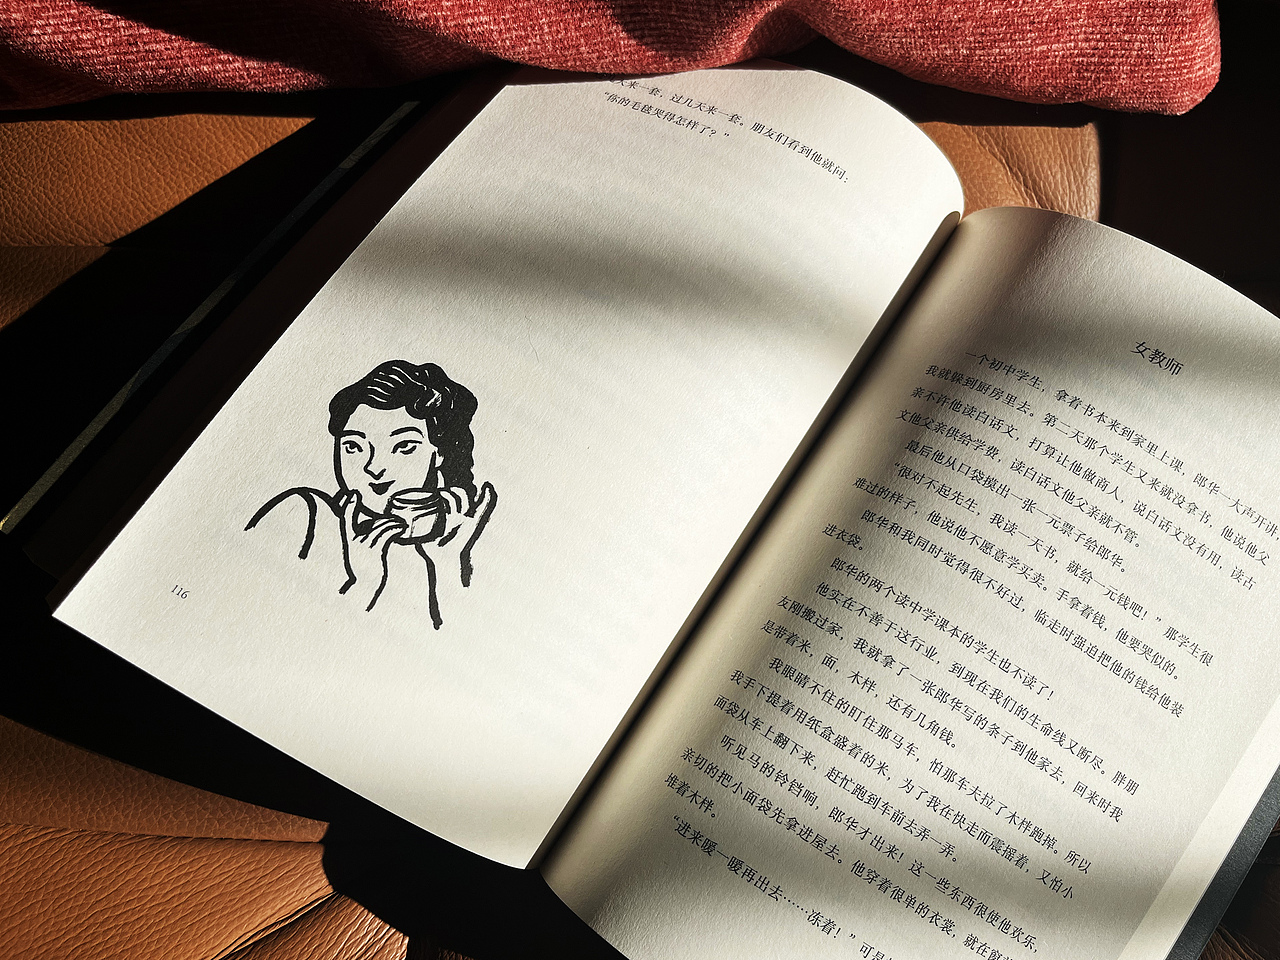 天来一套，过几天来一套。朋友们看到他就问：
“你的毛毯哭得怎样了？”
116
女教师
一个初中学生，拿着书本来到家里上课，郎华一大声开讲，
我就躲到厨房里去。第二天那个学生又来就没拿书，他说他父
亲不许他读白话文，打算让他做商人，说白话文没有用，读古
文他父亲供给学费，读白话文他父亲就不管。
最后他从口袋摸出一张一元票子给郎华。
“很对不起先生，我读一天书，就给一元钱吧！”那学生很
难过的样子，他说他不愿意学买卖。手拿着钱，他要哭似的。
郎华和我同时觉得很不好过，临走时强迫把他的钱给他装
进衣袋。
郎华的两个读中学课本的学生也不读了！
他实在不善于这行业，到现在我们的生命线又断尽。胖朋
友刚搬过家，我就拿了一张郎华写的条子到他家去，回来时我
是带着米，面，木柈，还有几角钱。
我眼睛不住的盯住那马车，怕那车夫拉了木柈跑掉。所以
我手下提着用纸盒盛着的米，为了我在快走而震摇着，又怕小
面袋从车上翻下来，赶忙跑到车前去弄一弄。
听见马的铃铛响，郎华才出来！这一些东西很使他欢乐，
亲切的把小面袋先拿进屋去。他穿着很单的衣裳，就在窗
堆着木柈。
“进来暖一暖再出去……冻着！”可是